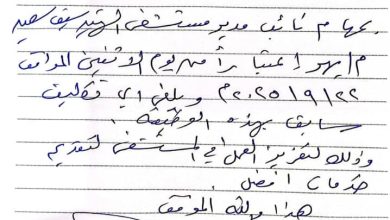 بمهام نائب مدير مستشفى الشهيد سيف سعيد
اعتباراً من يوم الاثنين الموافق
٢٢/٩/٢٠٢٥م ويلغى اي تكليف
سابق بهذه الوظيفة.
وذلك لتعزيز العمل في المستشفى لتقديم
خدمات افضل.
هذا والله الموفق